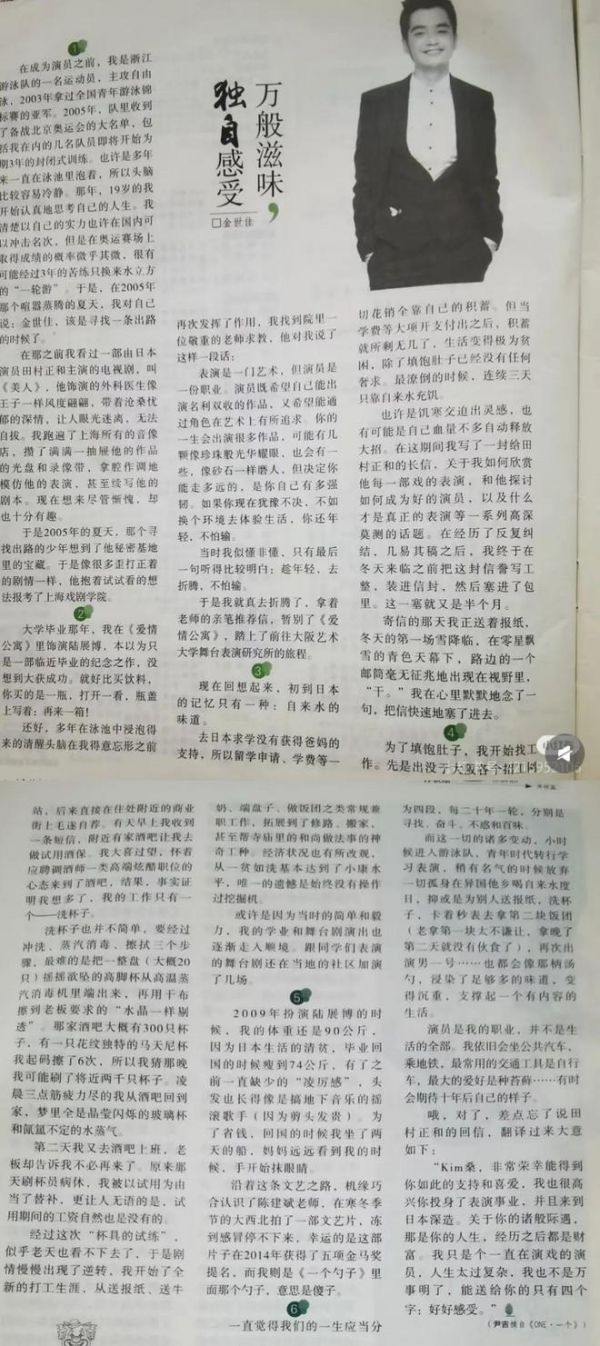 万般滋味，
独自感受
□金世佳
1
在成为演员之前，我是浙江
游泳队的一名运动员，主攻自由
泳，2003年拿过全国青年游泳锦
标赛的亚军。2005年，队里收到
了备战北京奥运会的大名单，包
括我在内的几名队员即将开始为
期3年的封闭式训练。也许是多年
来一直在泳池里泡着，所以头脑
比较容易冷静。那年，19岁的我
开始认真地思考自己的人生。我
清楚以自己的实力也许在国内可
以冲击名次，但是在奥运赛场上
取得成绩的概率微乎其微，很有
可能经过3年的苦练只换来水立方
的“一轮游”。于是，在2005年
那个喧嚣蒸腾的夏天，我对自己
说：金世佳，该是寻找一条出路
的时候了。
在那之前我看过一部由日本
演员田村正和主演的电视剧，叫
《美人》，他饰演的外科医生像
王子一样风度翩翩，带着沧桑忧
郁的深情，让人眼光迷离，无法
自拔。我跑遍了上海所有的音像
店，攒了满满一抽屉他的作品
的光盘和录像带，拿腔作调地
模仿他的表演，甚至续写他的
剧本。现在想来尽管惭愧，却
也十分有趣。
于是2005年的夏天，那个寻
找出路的少年想到了他秘密基地
里的宝藏。于是像很多歪打正着
的剧情一样，他抱着试试看的想
法报考了上海戏剧学院。
2
大学毕业那年，我在《爱情
公寓》里饰演陆展博，本以为只
是一部临近毕业的纪念之作，没
想到大获成功。就好比买饮料，
你买的是一瓶，打开一看，瓶盖
上写着：再来一箱！
还好，多年在泳池中浸泡得
来的清醒头脑在我得意忘形之前
再次发挥了作用，我找到院里一
位敬重的老师求教，他对我说了
这样一段话：
表演是一门艺术，但演员是
一份职业。演员既希望自己能出
演名利双收的作品，又希望能通
过角色在艺术上有所追求。你的
一生会出演很多作品，可能有几
颗像珍珠般光华耀眼，也会有一
些，像砂石一样磨人，但决定你
能走多远的，是你自己有多强
韧。如果你现在犹豫不决，不如
换个环境去体验生活，你还年
轻，不怕输。
当时我似懂非懂，只有最后
一句听得比较明白：趁年轻，去
折腾，不怕输。
于是我就真去折腾了，拿着
老师的亲笔推荐信，暂别了《爱
情公寓》，踏上了前往大阪艺术
大学舞台表演研究所的旅程。
3
现在回想起来，初到日本
的记忆只有一种：自来水的
味道。
去日本求学没有获得爸妈的
支持，所以留学申请、学费等一
切花销全靠自己的积蓄。但当
学费等大项开支付出之后，积蓄
就所剩无几了，生活变得极为贫
困，除了填饱肚子已经没有任何
奢求。最潦倒的时候，连续三天
只靠自来水充饥。
也许是饥寒交迫出灵感，也
有可能是自己血量不多自动释放
大招。在这期间我写了一封给田
村正和的长信，关于我如何欣赏
他每一部戏的表演，和他探讨
如何成为好的演员，以及什么
才是真正的表演等一系列高深
莫测的话题。在经历了反复纠
结，几易其稿之后，我终于在
冬天来临之前把这封信誊写工
整，装进信封，然后塞进了包
里。这一塞就又是半个月。
寄信的那天我正送着报纸，
冬天的第一场雪降临，在零星飘
雪的青色天幕下，路边的一个
邮筒毫无征兆地出现在视野里，
“干。”我在心里默默地念了一
句，把信快速地塞了进去。
4
为了填饱肚子，我开始找工
作。先是出没于大阪各个招工网
站，后来直接在住处附近的商业
街上毛遂自荐。有天早上我收到
一条短信，附近有家酒吧让我去
做试用酒保。我大喜过望，怀着
应聘调酒师一类高端炫酷职位的
心态来到了酒吧，结果，事实证
明我想多了，我的工作只有一
个——洗杯子。
洗杯子也并不简单，要经过
冲洗、蒸汽消毒、擦拭三个步
骤，最难的是把一整盘（大概20
只）摇摇欲坠的高脚杯从高温蒸
汽消毒机里端出来，再用干布
擦到老板要求的“水晶一样剔
透”。那家酒吧大概有300只杯
子，有一只花纹独特的马天尼杯
我起码擦了6次，所以我猜那晚
我可能刷了将近两千只杯子。凌
晨三点筋疲力尽的我从酒吧回到
家，梦里全是晶莹闪烁的玻璃杯
和氤氲不定的水蒸气。
第二天我又去酒吧上班，老
板却告诉我不必再来了。原来那
天刷杯员病休，我被以试用为由
当了替补，更让人无语的是，试
用期间的工资自然也是没有的。
经过这次“杯具的试炼”，
似乎老天也看不下去了，于是剧
情慢慢出现了逆转，我开始了全
新的打工生涯，从送报纸、送牛
奶、端盘子、做饭团之类常规兼
职工作，拓展到了修路、搬家，
甚至帮寺庙里的和尚做法事的神
奇工种。经济状况也有所改观，
从一贫如洗基本达到了小康水
平，唯一的遗憾是始终没有操作
过挖掘机。
或许是因为当时的简单和毅
力，我的学业和舞台剧演出也
逐渐走入顺境。跟同学们表演
的舞台剧还在当地的社区加演
了几场。
5
2009年扮演陆展博的时
候，我的体重还是90公斤，
因为日本生活的清贫，毕业回
国的时候瘦到74公斤，有了之
前一直缺少的“凌厉感”，头
发也长得像是搞地下音乐的摇
滚歌手（因为剪头发贵）。为
了省钱，回国的时候坐了两
天的船，妈妈远远看到我的时
候，手开始抹眼睛。
沿着这条文艺之路，机缘巧
合认识了陈建斌老师，在寒冬季
节的大西北拍了一部文艺片，冻
到感冒停不下来，幸运的是这部
片子在2014年获得了五项金马奖
提名，而我则是《一个勺子》里
面那个勺子，意思是傻子。
6
一直觉得我们的一生应当分
为四段，每二十年一轮，分别是
寻找、奋斗、不惑和百味。
而这一切的诸多变动，小时
候进入游泳队，青年时代转行学
习表演，稍有名气的时候放弃
一切孤身在异国他乡喝自来水度
日，抑或是为别人送报纸，洗杯
子，卡着秒表去拿第二块饭团
（老拿第一块太不谦让，拿晚了
第二天就没有伙食了），再次出
演男一号……也都会像那柄汤
勺，浸染了足够多的味道，变
得沉重，支撑起一个有内容的
生活。
演员是我的职业，并不是生
活的全部。我依旧会坐公共汽车，
乘地铁，最常用的交通工具是自行
车，最大的爱好是种苔藓……有时
会期待十年后自己的样子。
哦，对了，差点忘了说田
村正和的回信，翻译过来大意
如下：
“Kim桑，非常荣幸能得到
你如此的支持和喜爱，我也很高
兴你投身了表演事业，并且来到
日本深造。关于你的诸般际遇，
那是你的人生，经历之后都是财
富。我只是个一直在演戏的演
员，人生太过复杂，我也不是万
事明了，能送给你的只有四个
字：好好感受。”
（尹吉摘自《ONE·一个》）